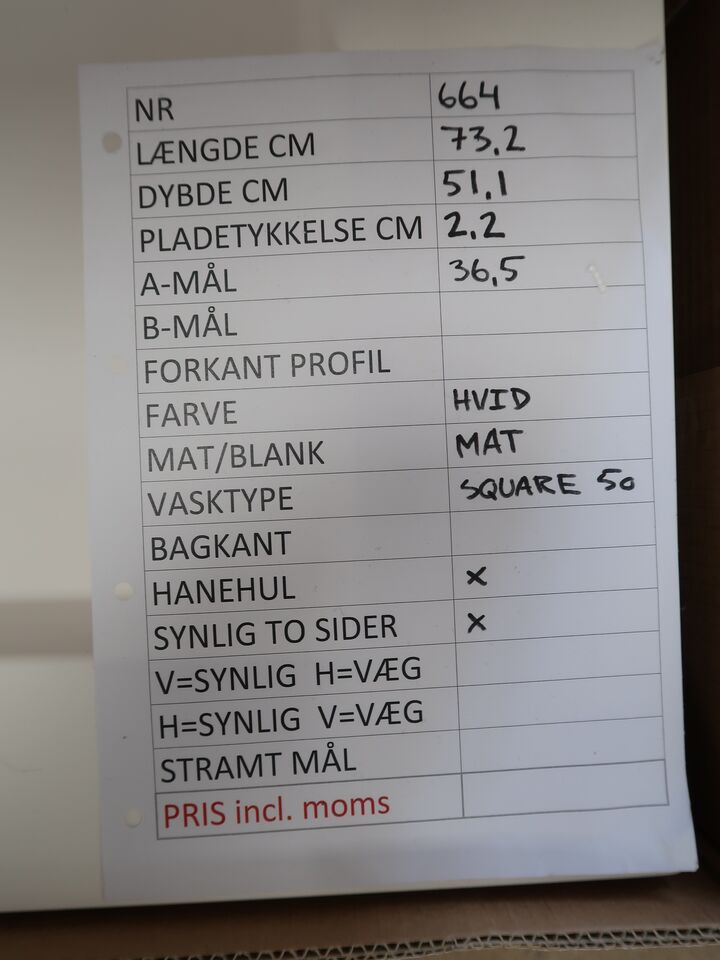 NR 664
LÆNGDE CM 73,2
DYBDE CM 51,1
PLADETYKKELSE CM 2.2
A-MÅL 36,5
B-MÅL
FORKANT PROFIL
FARVE HVID
MAT/BLANK MAT
VASKTYPE SQUARE 50
BAGKANT
HANEHUL X
SYNLIG TO SIDER X
V=SYNLIG H=VÆG
H=SYNLIG V=VÆG
STRAMT MÅL
PRIS incl. moms